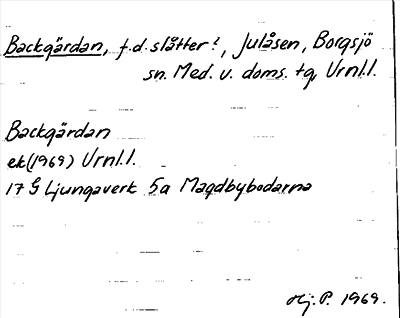 Backgärdan, f.d. slåtter?, Julåsen, Borgsjö
sn. Med. v. doms. tg, Vrnl.l.
Backgärdan
ek(1969) Vrnl.l.
17 G Ljungaverk 5a Magdbybodarna
Hj. P. 1969.